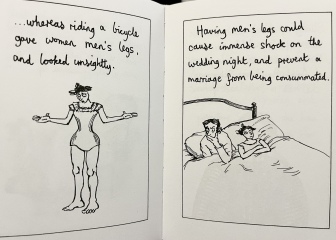 ...whereas riding a bicycle
gave women men's legs,
and looked unsightly.
Having men's legs could
cause immense shock on the
wedding night, and prevent a
marriage from being consummated.